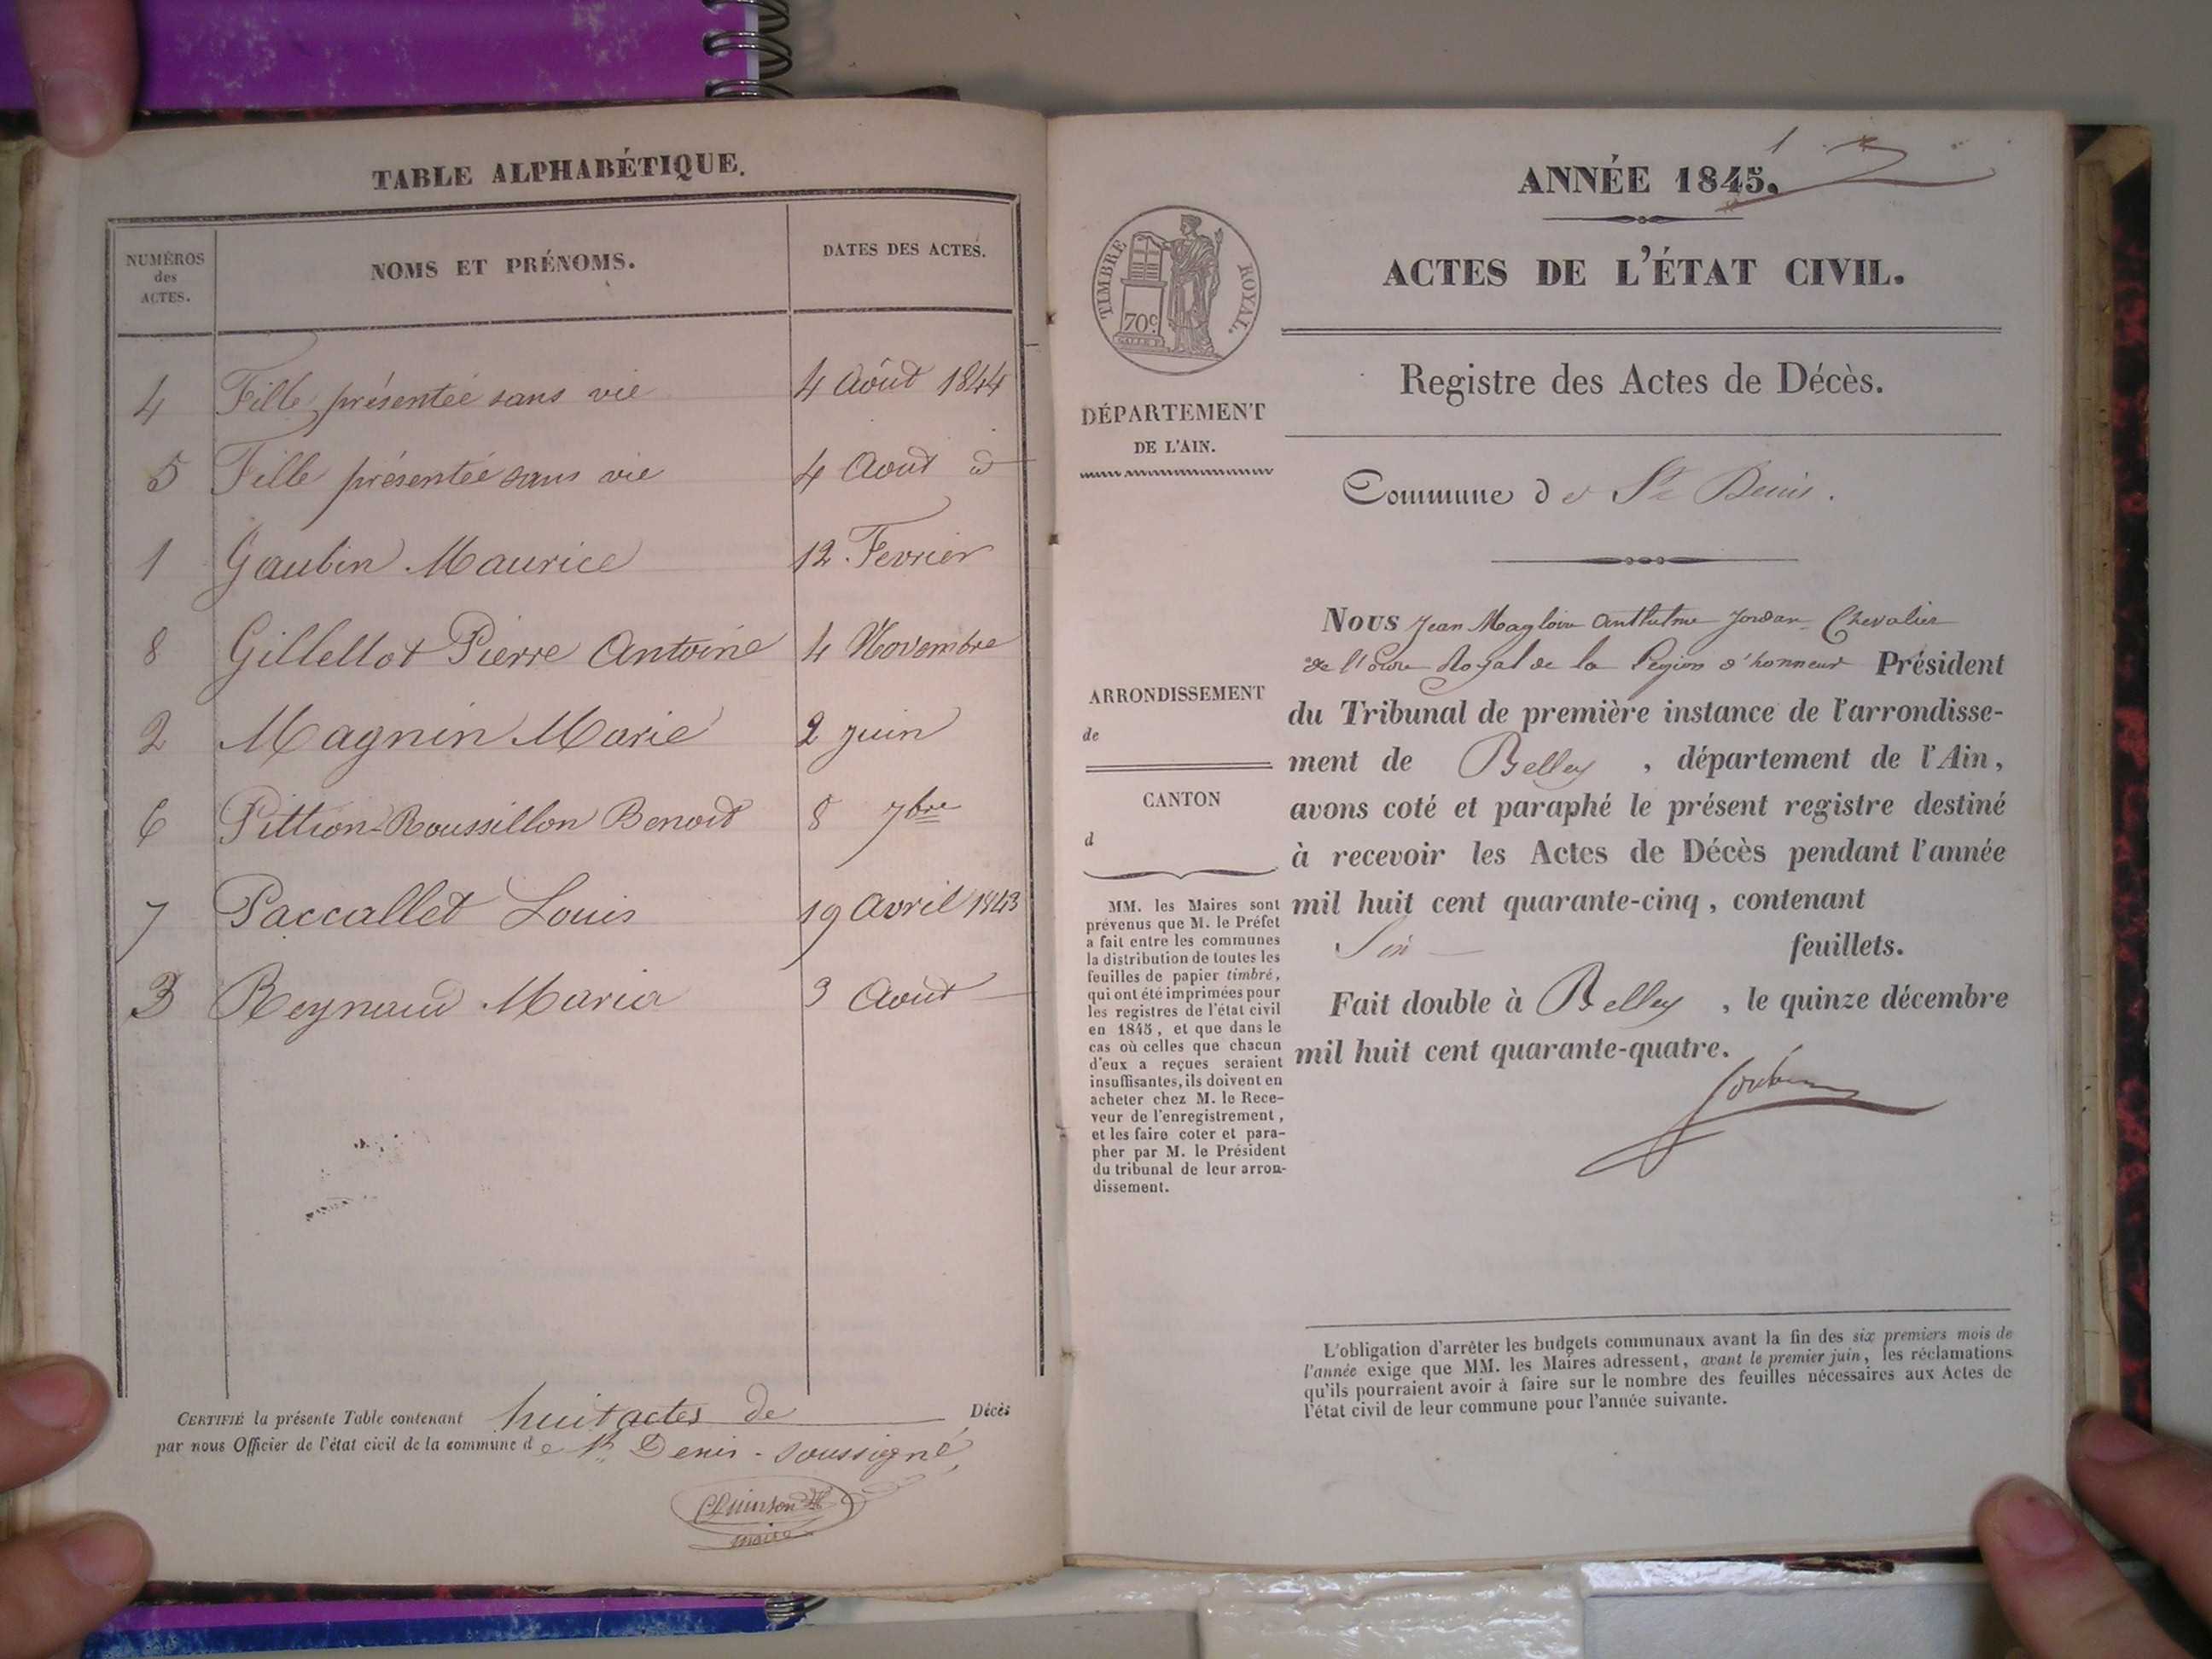 TABLE ALPHABÉTIQUE.
NUMÉROS
des
ACTES.
NOMS ET PRÉNOMS.
DATES DES ACTES.
4 Fille présentée sans vie 4 Août 1844
5 Fille présentée sans vie 4 Aout id
1 Gaubin Maurice 12 Fevrier
8 Gillellot Pierre Antoine 4 Novembre
2 Magnin Marie 2 juin
6 Pittion-Roussillon Benoit 8 7bre
7 Paccallet Louis 19 Avril 1843
3 Reynaud Maria 3 Aout
CERTIFIÉ la présente Table contenant huit actes de Décès
par nous Officier de l'état civil de la commune de St Denis - soussigné
Quinson
maire
1
ANNÉE 1845.
ACTES DE L'ÉTAT CIVIL.
TIMBRE ROYAL.
70c
Registre des Actes de Décès.
DÉPARTEMENT
DE L'AIN.
Commune de St Denis.
Nous Jean Magloire Anthelme Jordan Chevalier
de l'Ordre Royal de la Légion d'honneur Président
du Tribunal de première instance de l'arrondisse-
ment de Belley, département de l'Ain,
avons coté et paraphé le présent registre destiné
à recevoir les Actes de Décès pendant l'année
mil huit cent quarante-cinq, contenant
Six feuillets.
Fait double à Belley, le quinze décembre
mil huit cent quarante-quatre.
Jordan
ARRONDISSEMENT
de
CANTON
d
MM. les Maires sont
prévenus que M. le Préfet
a fait entre les communes
la distribution de toutes les
feuilles de papier timbré,
qui ont été imprimées pour
les registres de l'état civil
en 1845, et que dans le
cas où celles que chacun
d'eux a reçues seraient
insuffisantes, ils doivent en
acheter chez M. le Rece-
veur de l'enregistrement,
et les faire coter et para-
pher par M. le Président
du tribunal de leur arron-
dissement.
L'obligation d'arrêter les budgets communaux avant la fin des six premiers mois de
l'année exige que MM. les Maires adressent, avant le premier juin, les réclamations
qu'ils pourraient avoir à faire sur le nombre des feuilles nécessaires aux Actes de
l'état civil de leur commune pour l'année suivante.